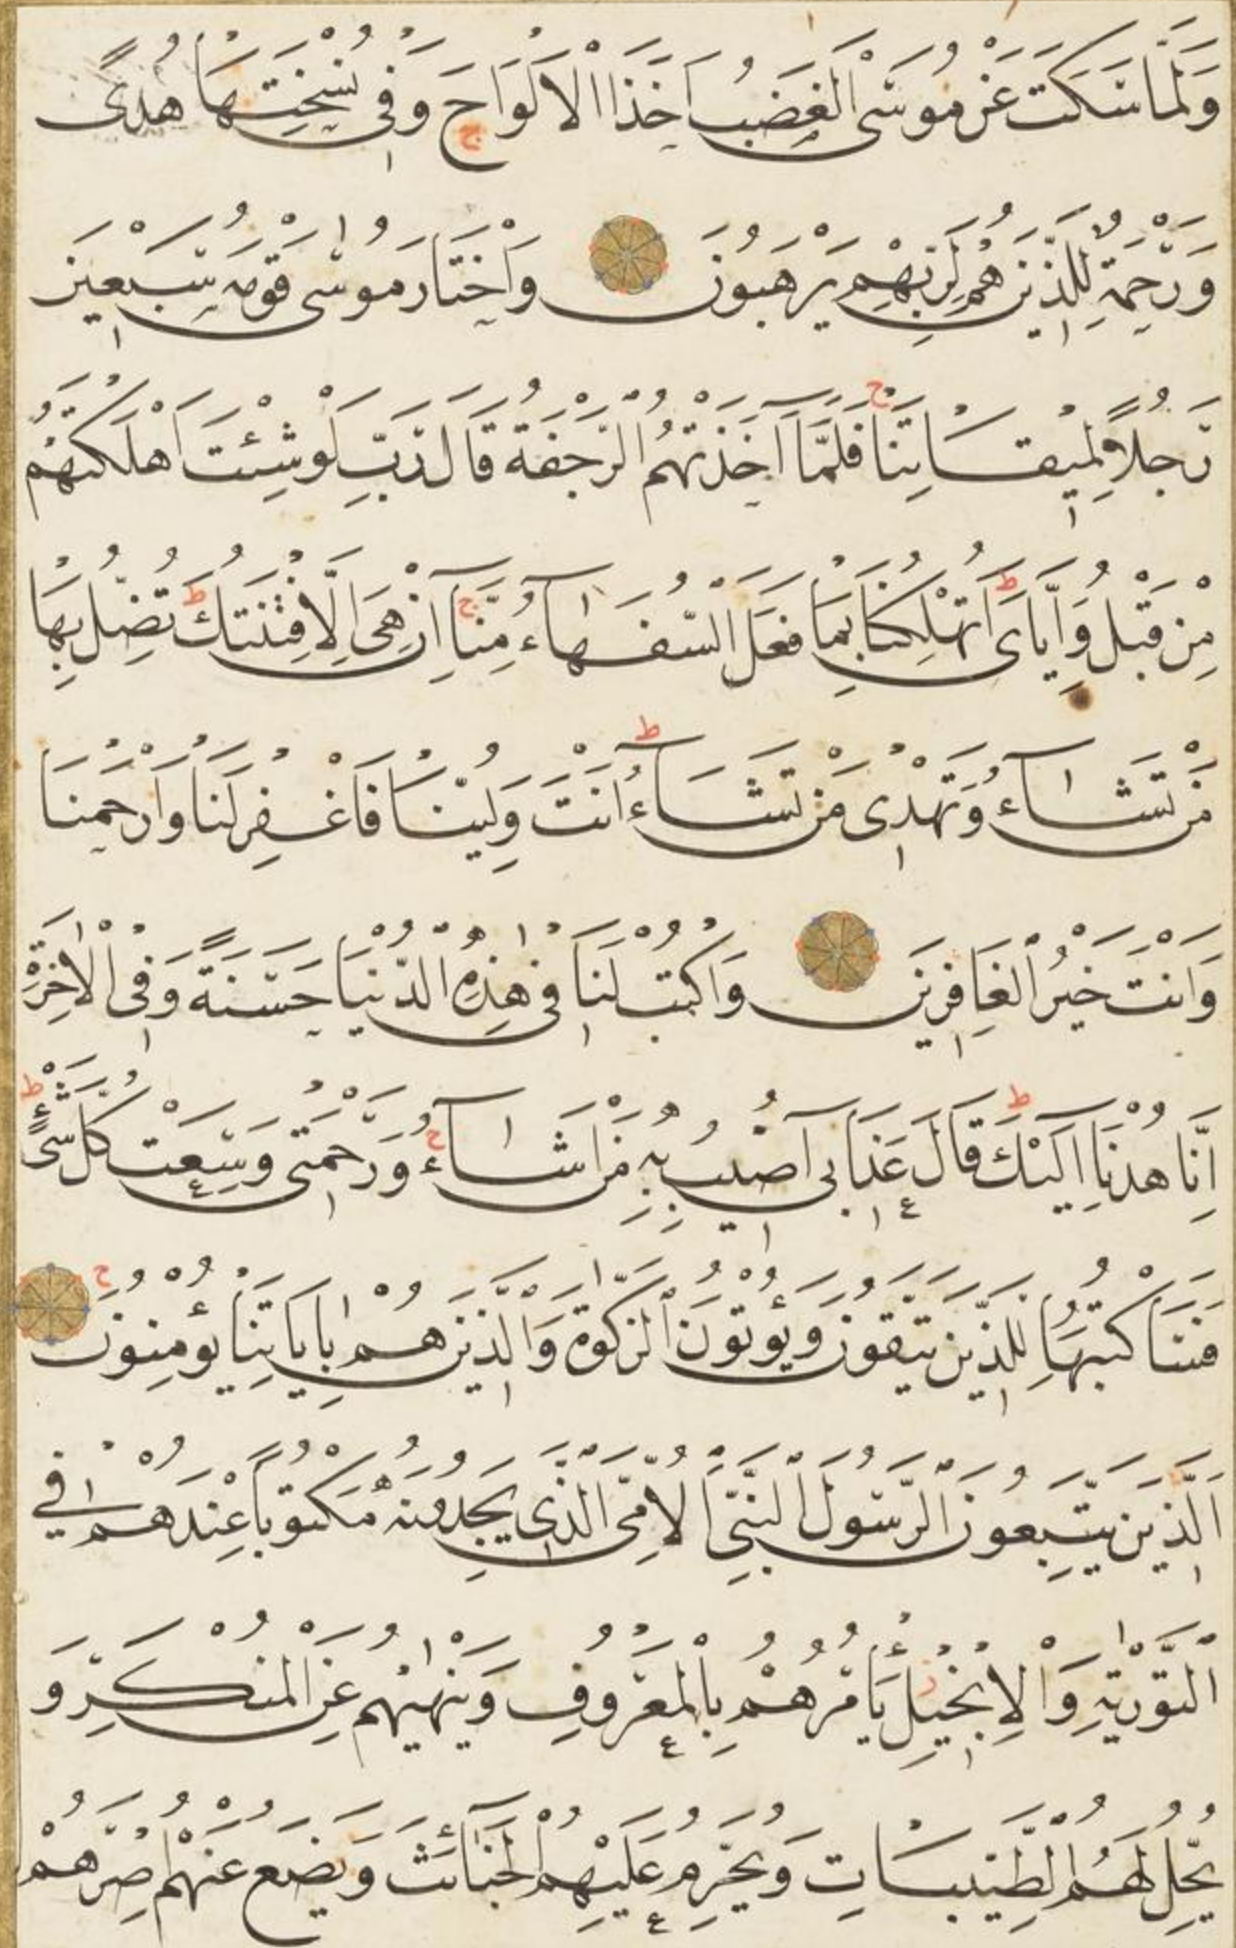 وَلَمَّا سَكَتَ عَنْ مُوسَى الْغَضَبُ اَخَذَ الْاَلْوَاحَ وَفِى نُسْخَتِهَا هُدًى
وَرَحْمَةٌ لِلَّذِينَ هُمْ لِرَبِّهِمْ يَرْهَبُونَ وَاخْتَارَ مُوسٰى قَوْمَهُ سَبْعِينَ
رَجُلًا لِمِيقَاتِنَا فَلَمَّآ اَخَذَتْهُمُ الرَّجْفَةُ قَالَ رَبِّ لَوْ شِئْتَ اَهْلَكْتَهُمْ
مِنْ قَبْلُ وَاِيَّاىَ اَتُهْلِكُنَا بِمَا فَعَلَ السُّفَهَآءُ مِنَّا اِنْ هِىَ اِلَّا فِتْنَتُكَ تُضِلُّ بِهَا
مَنْ تَشَآءُ وَتَهْدِى مَنْ تَشَآءُ اَنْتَ وَلِيُّنَا فَاغْفِرْ لَنَا وَارْحَمْنَا
وَاَنْتَ خَيْرُ الْغَافِرِينَ وَاكْتُبْ لَنَا فِى هٰذِهِ الدُّنْيَا حَسَنَةً وَفِى الْاٰخِرَةِ
اِنَّا هُدْنَآ اِلَيْكَ قَالَ عَذَابِىٓ اُصِيبُ بِهِ مَنْ اَشَآءُ وَرَحْمَتِى وَسِعَتْ كُلَّ شَىْءٍ
فَسَاَكْتُبُهَا لِلَّذِينَ يَتَّقُونَ وَيُؤْتُونَ الزَّكٰوةَ وَالَّذِينَ هُمْ بِاٰيَاتِنَا يُؤْمِنُونَ
اَلَّذِينَ يَتَّبِعُونَ الرَّسُولَ النَّبِىَّ الْاُمِّىَّ الَّذِى يَجِدُونَهُ مَكْتُوبًا عِنْدَهُمْ فِى
التَّوْرٰيةِ وَالْاِنْجِيلِ يَأْمُرُهُمْ بِالْمَعْرُوفِ وَيَنْهٰيهُمْ عَنِ الْمُنْكَرِ وَ
يُحِلُّ لَهُمُ الطَّيِّبَاتِ وَيُحَرِّمُ عَلَيْهِمُ الْخَبَآئِثَ وَيَضَعُ عَنْهُمْ اِصْرَهُمْ